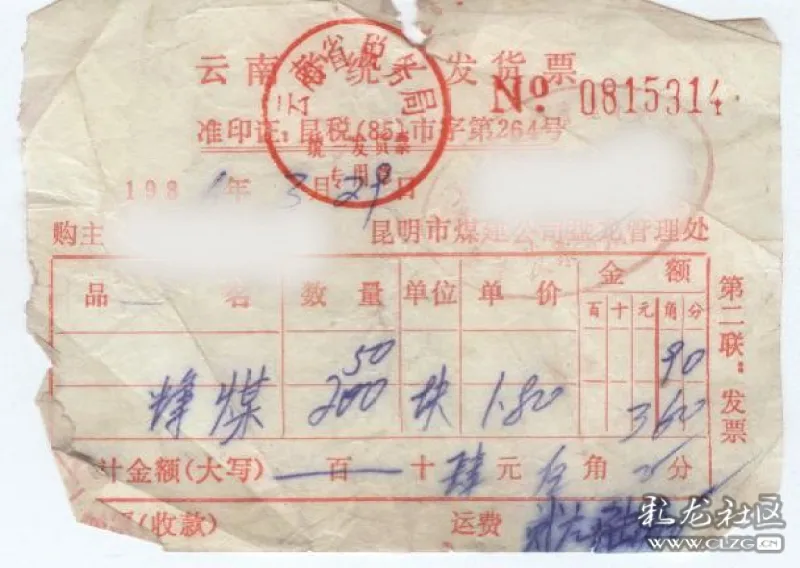 云南 统 发货票
云南省税务局
统一发货票
专用章
No. 0815314
准印证:昆税(85)市字第264号
198 年3月29日
购主
昆明市煤建公司 管理处
品名 数量 单位 单价 金额
百十元角分
50 90
煤 200 块 1.80 360
计金额(大写) 百 十 肆元 角 分
(收款) 运费
第二联:发票
彩龙社区
WWW.CLZG.CN